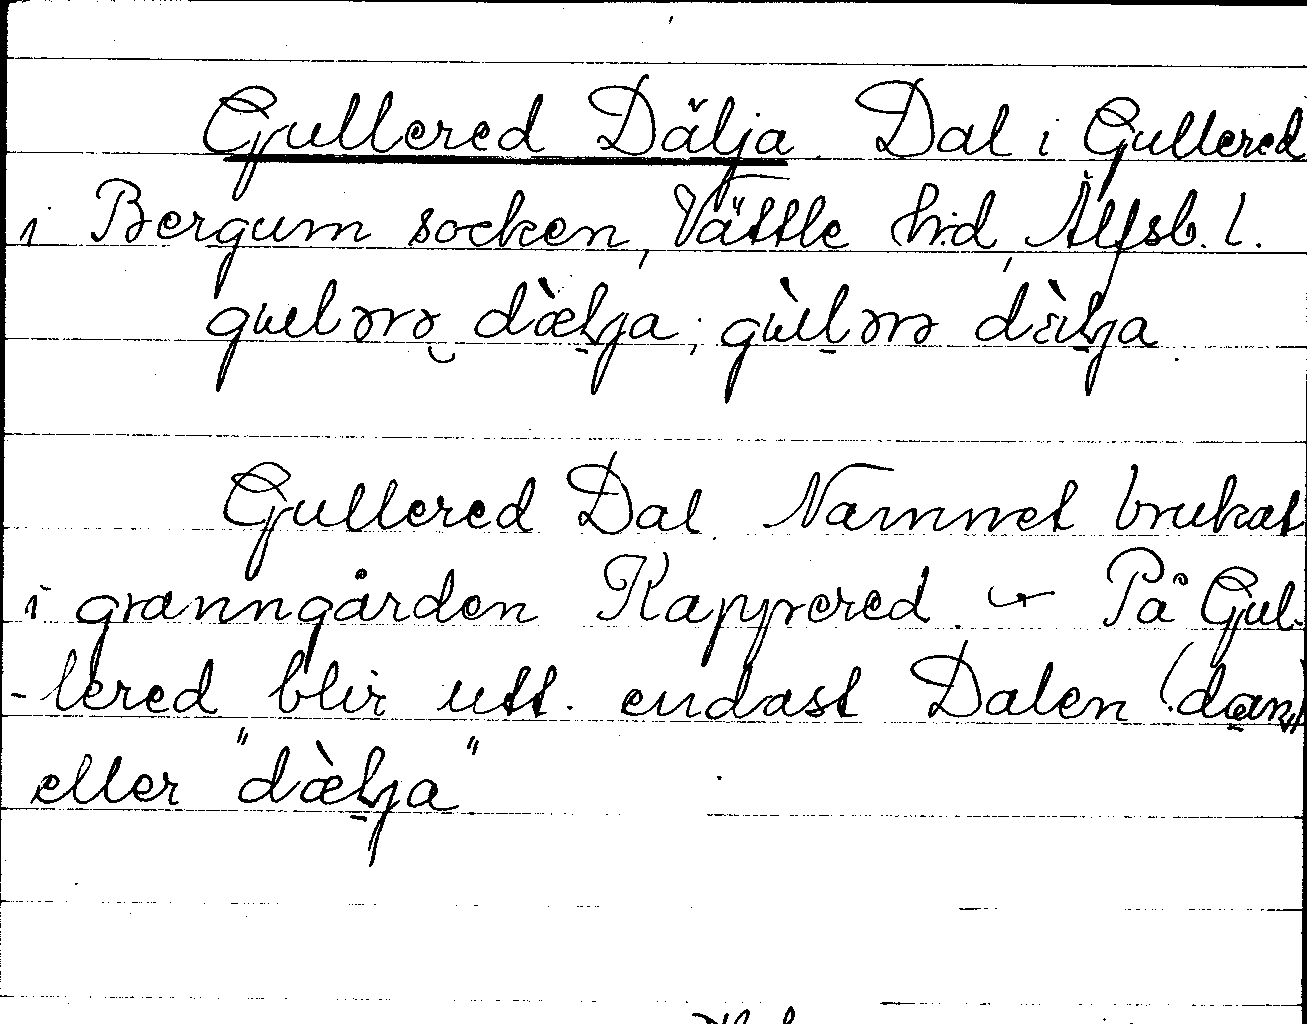 Gullered Dälja. Dal i Gullered
i Bergum socken, Vättle hd, Älfsb. l.
gulərə dæ̀lja; gùlərə dæ̀lja.
Gullered Dal. Namnet brukat
i granngården Kapprered. - På Gul-
-lered blir utt. endast Dalen (dan)
eller "dæ̀lja"